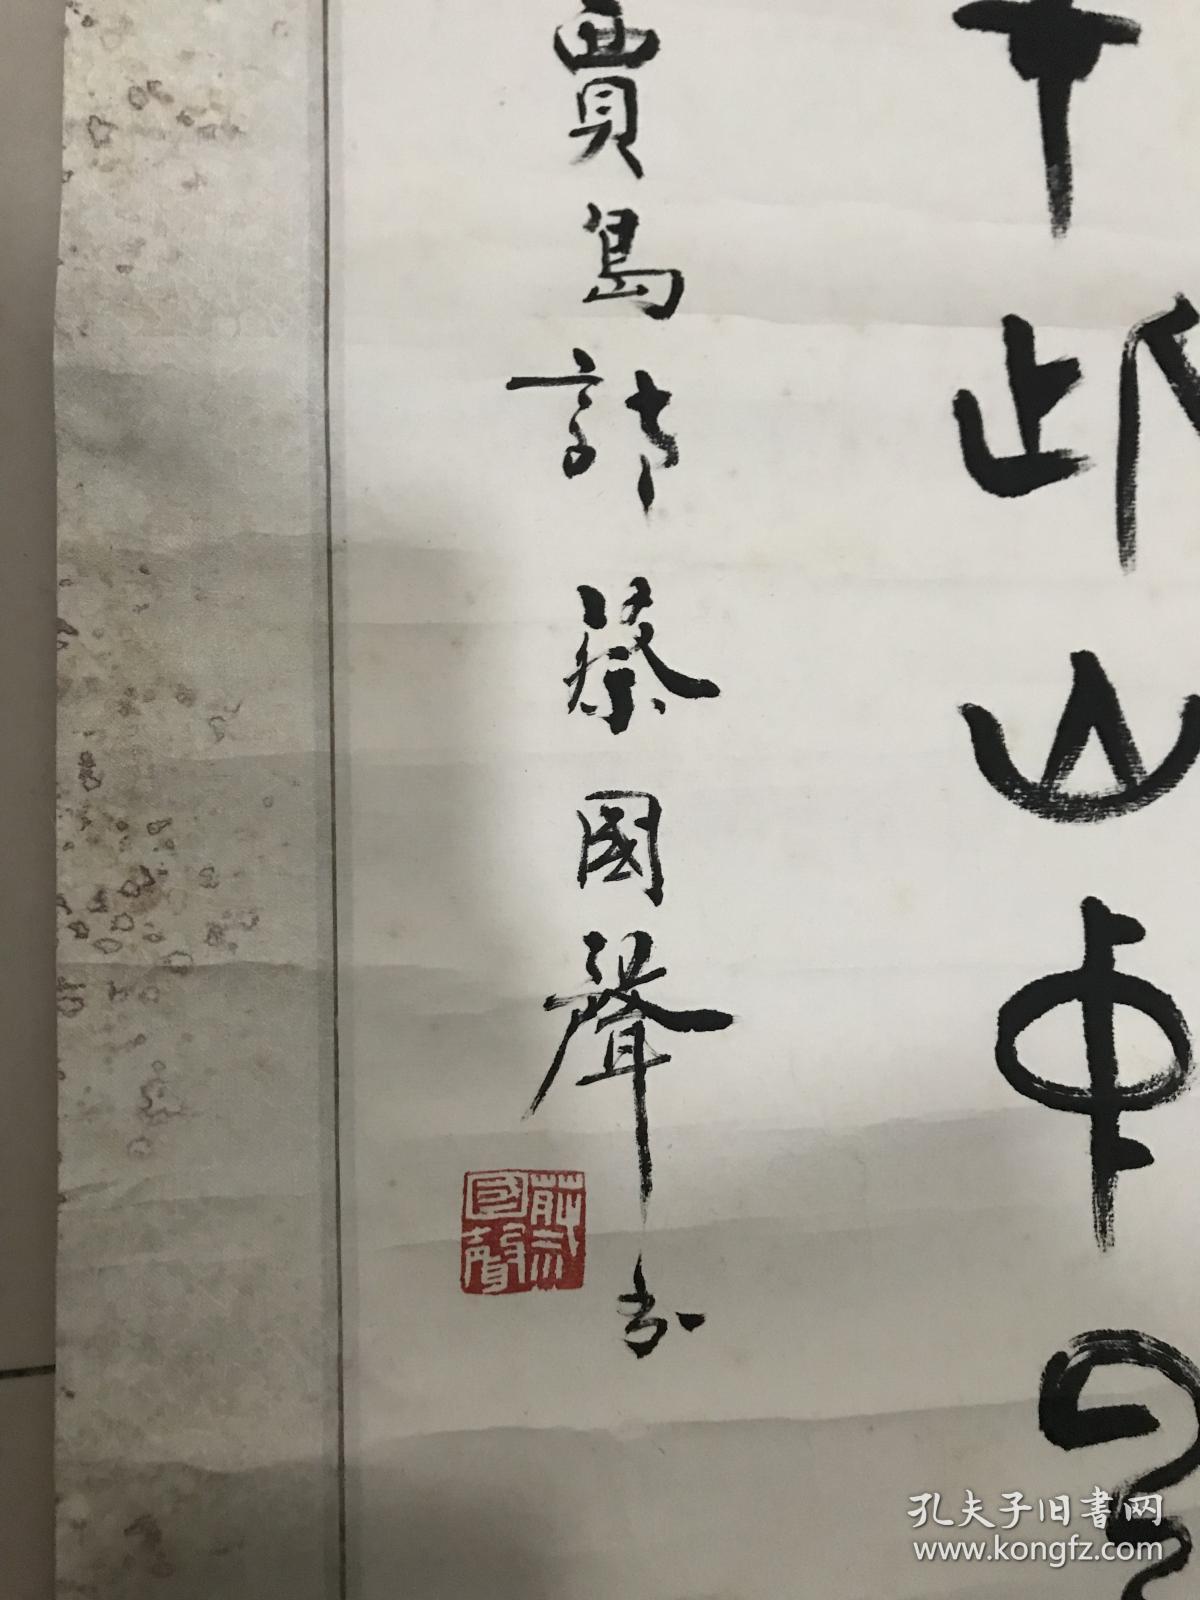 在此山中云
賈島詩蔡國聲书
蔡國聲
孔夫子旧書网
www.kongfz.com